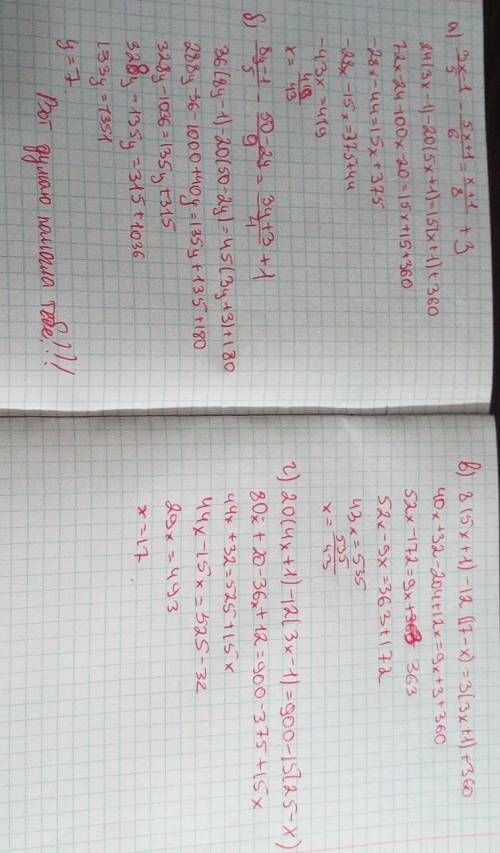 а) 3x-1/5 - 5x+1/6 = x+1/8 + 3
24(3x-1)-20(5x+1)=15(x+1)+360
72x-24-100x-20=15x+15+360
-28x-44=15x+375
-28x-15x=375+44
-43x=419
x = -419/43
б) 8y-1/5 - 50-2y/9 = 3y+3/4 + 1
36(8y-1)-20(50-2y)=45(3y+3)+180
288y-36-1000+40y=135y+135+180
328y-1036=135y+315
328y-135y=315+1036
193y=1351
y=7.
Вот думаю помогла тебе!!!!
в) 8(5x+1)-12(17-x)=3(3x+1)+360
40x+32-204+12x=9x+3+360
52x-172=9x+363
52x-9x=363+172
43x=535
x = 535/43
г) 20(4x+1)-12(3x-1)=900-15(25-x)
80x+20-36x+12=900-375+15x
44x+32=525+15x
44x-15x=525-32
29x=493
x=17.